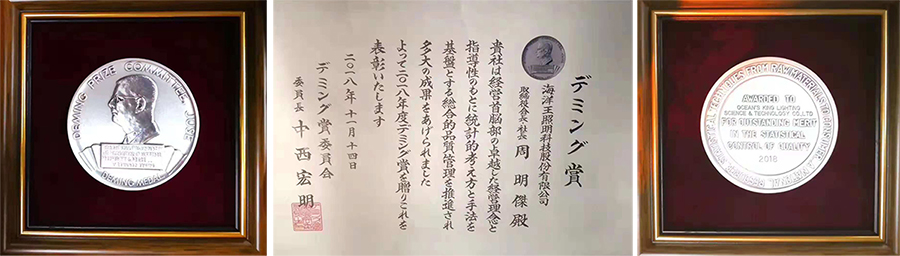 DEMING PRIZE COMMITTEE, JUSE
DEMING MEDAL
デミング賞
海洋王照明科技股份有限公司
取締役会長・社長 周明傑殿
貴社は経営首脳部の卓越した経営理念と
指導性のもとに統計的考え方と手法を
基盤とする総合的品質管理を推進され
多大の成果をあげられました
よって二〇一八年度デミング賞を贈りこれを
表彰いたします
二〇一八年十一月十四日
デミング賞委員会
委員長 中西宏明
AWARDED TO
OCEAN'S KING LIGHTING
SCIENCE & TECHNOLOGY CO., LTD
FOR OUTSTANDING MERIT
IN THE STATISTICAL
CONTROL OF QUALITY
2018